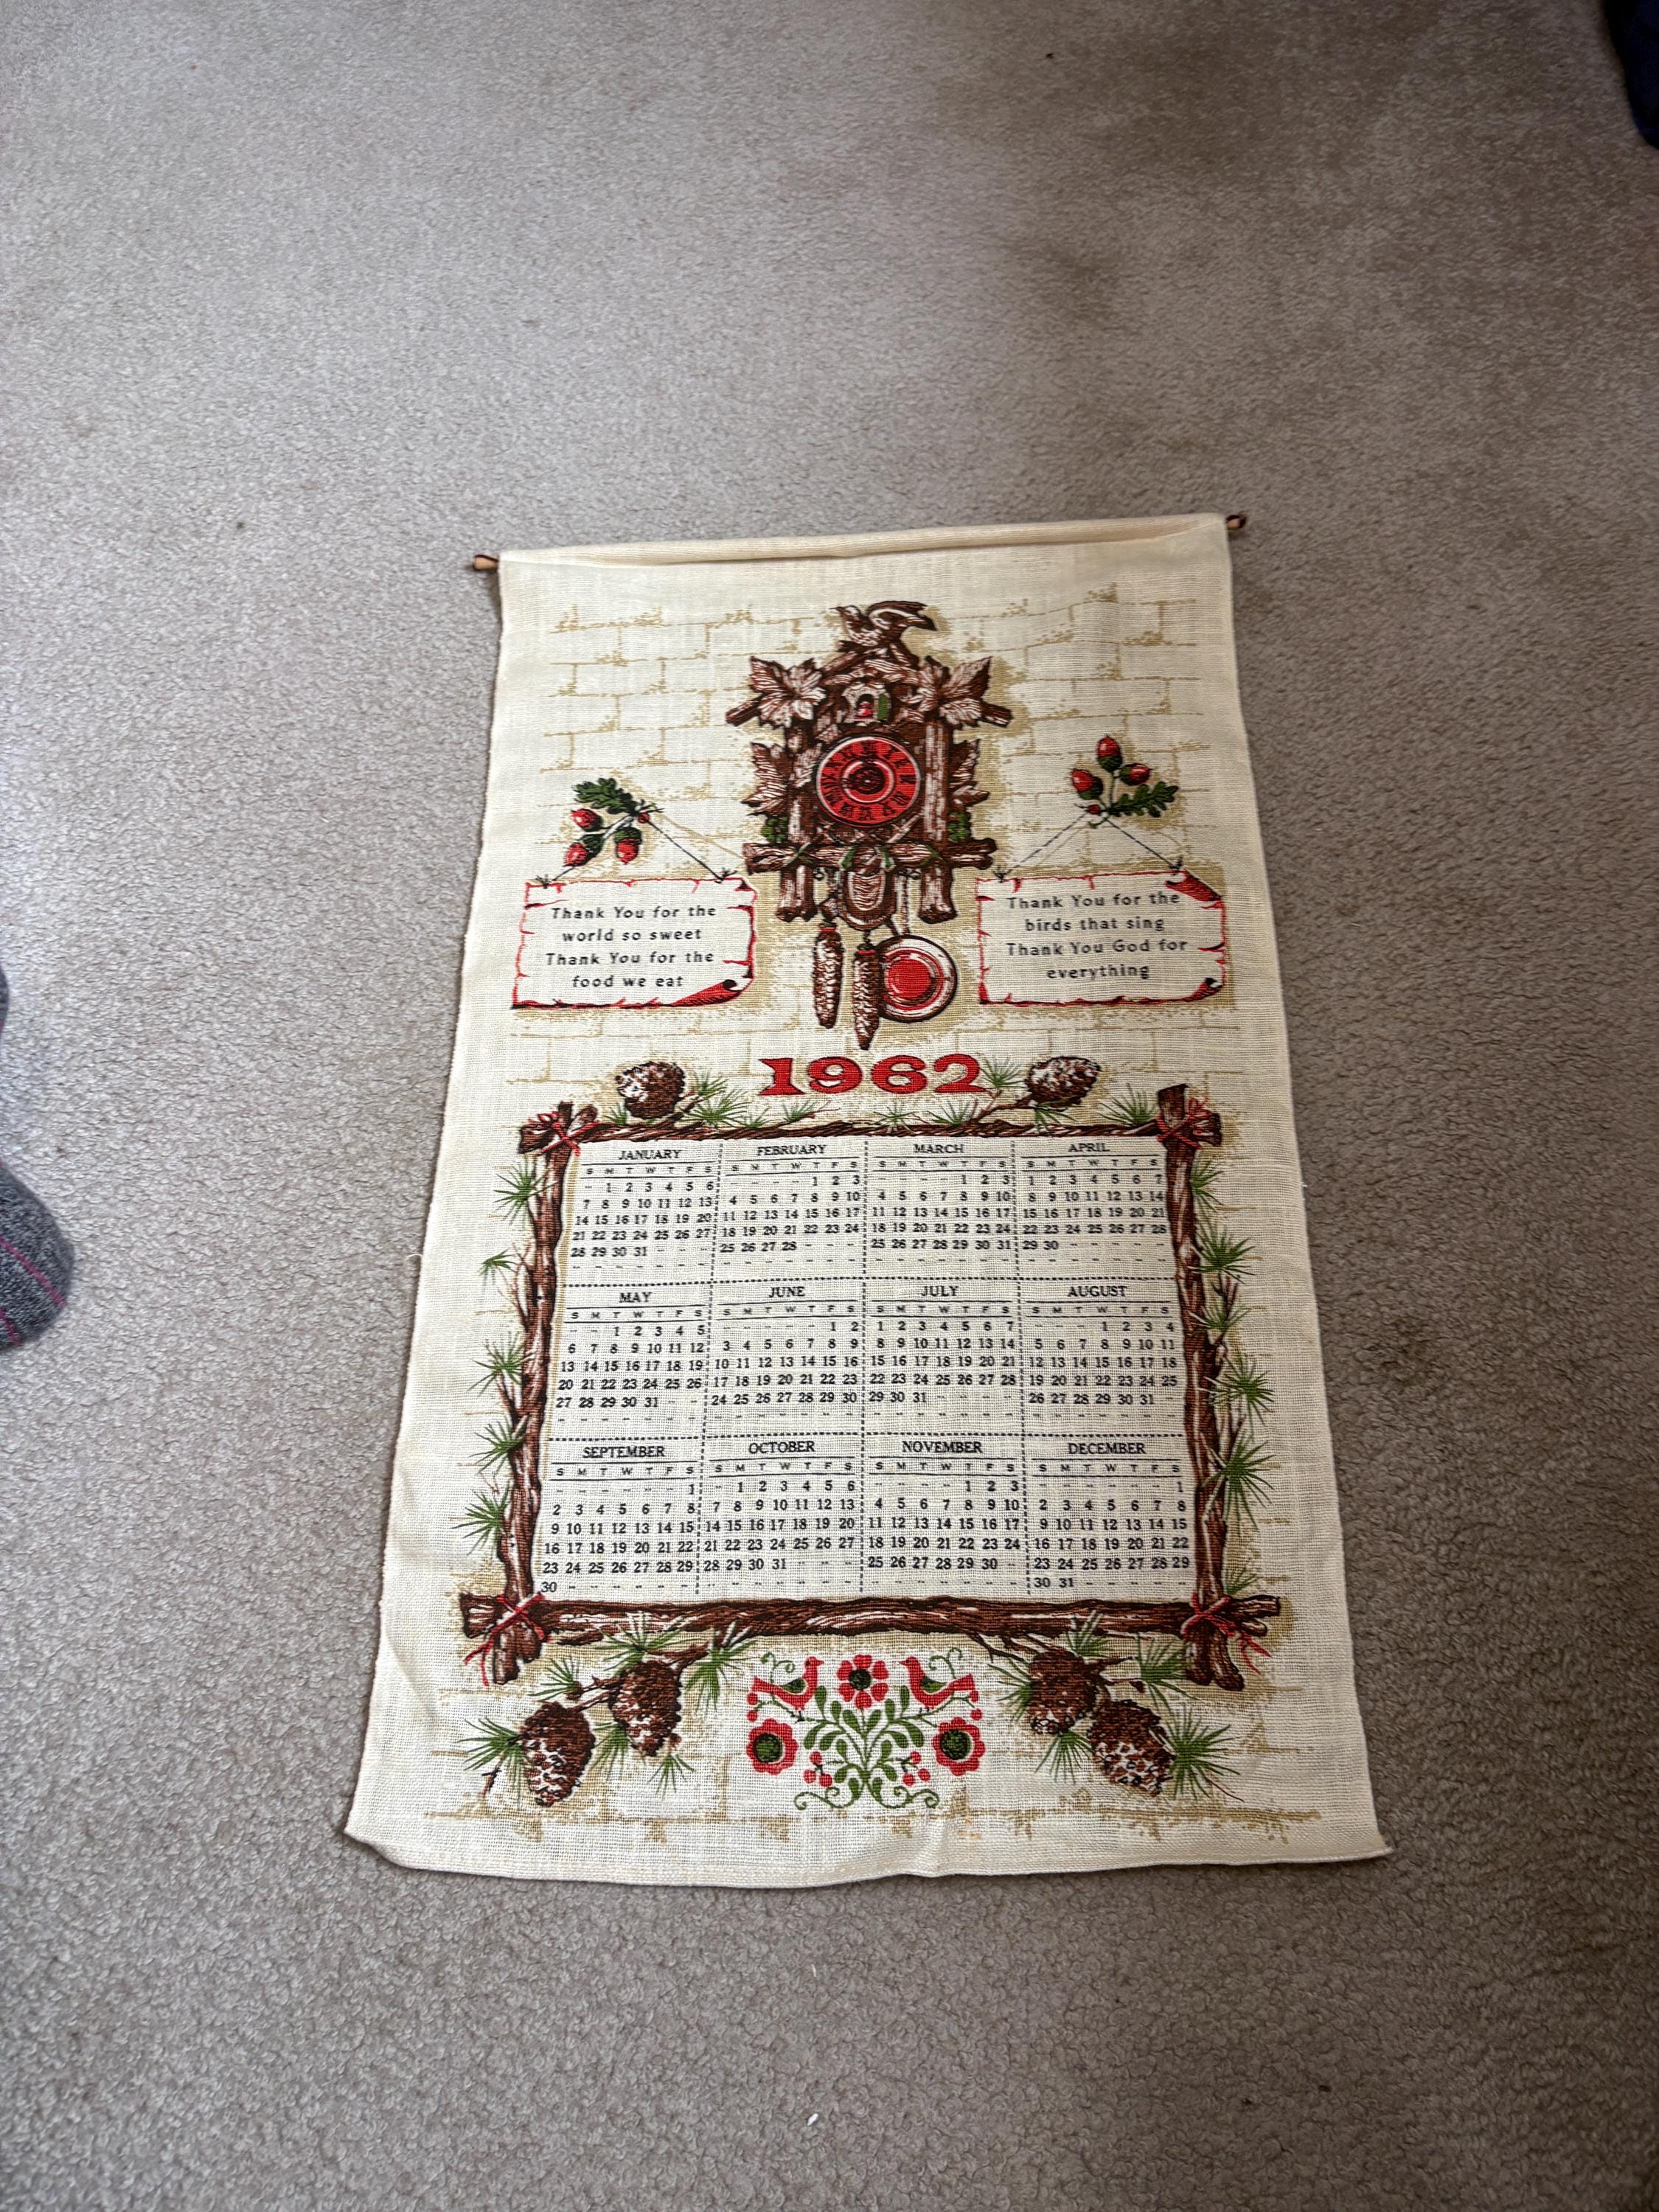 Thank You for the
world so sweet
Thank You for the
food we eat
Thank You for the
birds that sing
Thank You God for
everything
1962
JANUARY
S M T W T F S
1 2 3 4 5 6
7 8 9 10 11 12 13
14 15 16 17 18 19 20
21 22 23 24 25 26 27
28 29 30 31
FEBRUARY
S M T W T F S
1 2 3
4 5 6 7 8 9 10
11 12 13 14 15 16 17
18 19 20 21 22 23 24
25 26 27 28
MARCH
S M T W T F S
1 2 3
4 5 6 7 8 9 10
11 12 13 14 15 16 17
18 19 20 21 22 23 24
25 26 27 28 29 30 31
APRIL
S M T W T F S
1 2 3 4 5 6 7
8 9 10 11 12 13 14
15 16 17 18 19 20 21
22 23 24 25 26 27 28
29 30
MAY
S M T W T F S
1 2 3 4 5
6 7 8 9 10 11 12
13 14 15 16 17 18 19
20 21 22 23 24 25 26
27 28 29 30 31
JUNE
S M T W T F S
1 2
3 4 5 6 7 8 9
10 11 12 13 14 15 16
17 18 19 20 21 22 23
24 25 26 27 28 29 30
JULY
S M T W T F S
1 2 3 4 5 6 7
8 9 10 11 12 13 14
15 16 17 18 19 20 21
22 23 24 25 26 27 28
29 30 31
AUGUST
S M T W T F S
1 2 3 4
5 6 7 8 9 10 11
12 13 14 15 16 17 18
19 20 21 22 23 24 25
26 27 28 29 30 31
SEPTEMBER
S M T W T F S
1
2 3 4 5 6 7 8
9 10 11 12 13 14 15
16 17 18 19 20 21 22
23 24 25 26 27 28 29
30
OCTOBER
S M T W T F S
1 2 3 4 5 6
7 8 9 10 11 12 13
14 15 16 17 18 19 20
21 22 23 24 25 26 27
28 29 30 31
NOVEMBER
S M T W T F S
1 2 3
4 5 6 7 8 9 10
11 12 13 14 15 16 17
18 19 20 21 22 23 24
25 26 27 28 29 30
DECEMBER
S M T W T F S
1
2 3 4 5 6 7 8
9 10 11 12 13 14 15
16 17 18 19 20 21 22
23 24 25 26 27 28 29
30 31